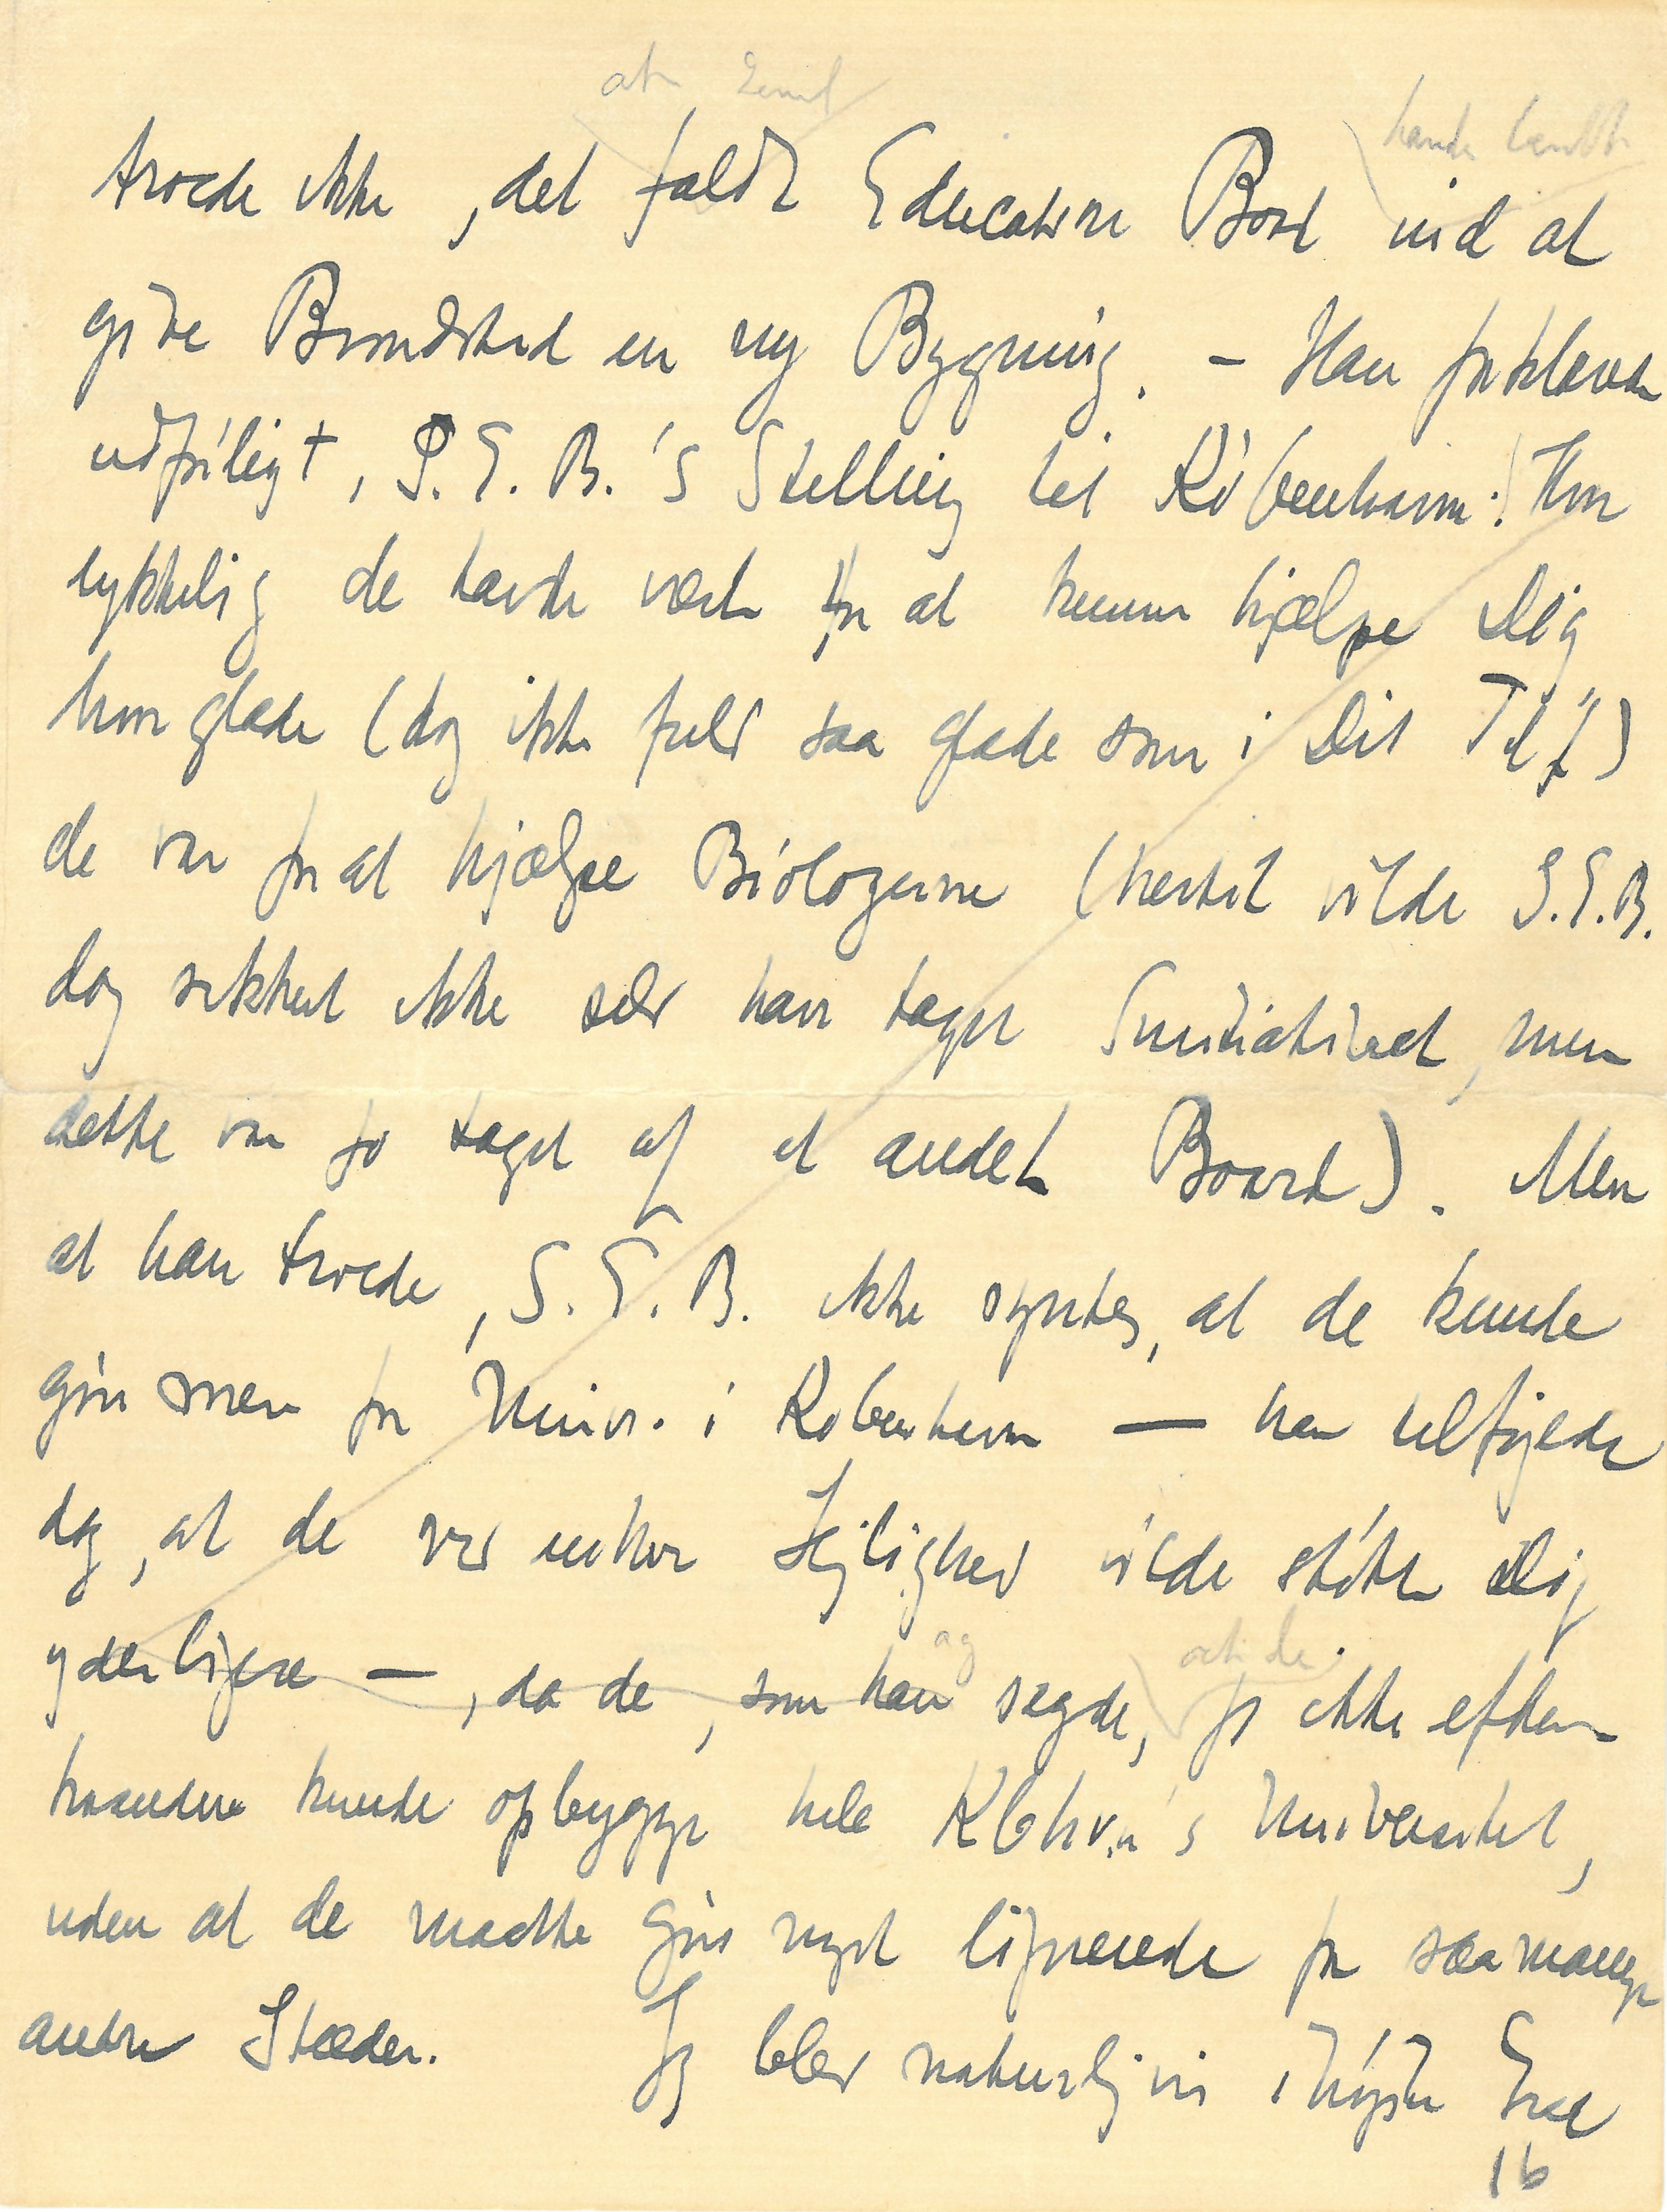 at
troede ikke, det faldt Education Bord ind at
give Brøndsted en ny Bygning. – Han forklarede
udførligt, I. E. B.'s Stilling til København: Hvor
lykkelig de havde været for at kunne hjælpe Dig
hvor glade (dog ikke fuldt saa glade som i Dit Tilf.)
de var for at hjælpe Biologerne (hertil vilde I.E.B.
dog sikkert ikke selv have taget Initiativet, men
dette var jo taget af et andet Board). Men
at han troede, I. E. B. ikke syntes, at de kunde
gøre mere for Univ. i København — han tilføjede
dog, at de ved enhver Lejlighed vilde støtte Dig
og at de
yderligere —, da de, som han sagde, jo ikke efter-
haanden kunde opbygge hele Kbhvn's Universitet,
uden at de maatte gøre noget lignende for saa mange
andre Stæder. Jeg blev naturligvis i højeste Grad
16